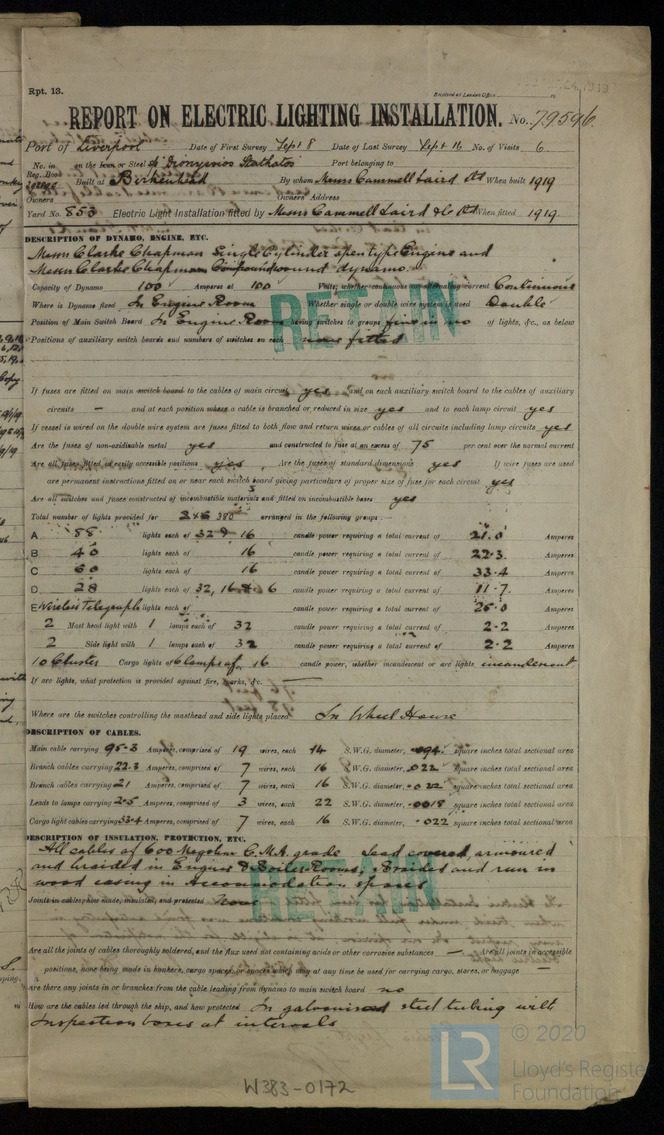 Rpt. 13.
REPORT ON ELECTRIC LIGHTING INSTALLATION. No. 79596
Port of Liverpool Date of First Survey Sept 8 Date of Last Survey Sept 16 No. of Visits 6
No. in Reg. Book on the Iron or Steel Dionyssios Stathatos Port belonging to
Built at Birkenhead By whom Messrs Cammell Laird When built 1919
Owners Owners' Address
Yard No. 853 Electric Light Installation fitted by Messrs Cammell Laird & Co Ltd When fitted 1919.
DESCRIPTION OF DYNAMO, ENGINE, ETC.
Messrs Clarke Chapman Single Cylinder open type Engine and
Messrs Clarke Chapman Compound wound dynamo.
Capacity of Dynamo 100 Amperes at 100 Volts, whether continuous or alternating current Continuous
Where is Dynamo fixed In Engine Room Whether single or double wire system is used Double
Position of Main Switch Board In Engine Room having switches to groups five in no of lights, &c., as below
Positions of auxiliary switch boards and numbers of switches on each none fitted
RETAIN
If fuses are fitted on main switch board to the cables of main circuit yes and on each auxiliary switch board to the cables of auxiliary
circuits — and at each position where a cable is branched or reduced in size yes and to each lamp circuit yes
If vessel is wired on the double wire system are fuses fitted to both flow and return wires or cables of all circuits including lamp circuits yes
Are the fuses of non-oxidizable metal yes and constructed to fuse at an excess of 75 per cent over the normal current
Are all fuses fitted in easily accessible positions yes, Are the fuses of standard dimensions yes If wire fuses are used
are permanent instructions fitted on or near each switch board giving particulars of proper size of fuse for each circuit yes
Are all switches and fuses constructed of incombustible materials and fitted on incombustible bases yes
Total number of lights provided for 380 arranged in the following groups:—
A 88 lights each of 32 & 16 candle power requiring a total current of 21.0 Amperes
B 40 lights each of 16 candle power requiring a total current of 22.3. Amperes
C 60 lights each of 16 candle power requiring a total current of 33.4 Amperes
D 28 lights each of 32, 16 & 6 candle power requiring a total current of 11.7. Amperes
E Wireless Telegraph lights each of candle power requiring a total current of 25.0 Amperes
2 Mast head light with 1 lamps each of 32 candle power requiring a total current of 2.2 Amperes
2 Side light with 1 lamps each of 32 candle power requiring a total current of 2.2 Amperes
10 Cluster Cargo lights of 6 lamps of, 16 candle power, whether incandescent or arc lights incandescent
If arc lights, what protection is provided against fire, sparks, &c.
Where are the switches controlling the masthead and side lights placed In Wheel House
DESCRIPTION OF CABLES.
Main cable carrying 95.3 Amperes, comprised of 19 wires, each 14 S.W.G. diameter, .094 square inches total sectional area
Branch cables carrying 22.3 Amperes, comprised of 7 wires, each 16 S.W.G. diameter, .022 square inches total sectional area
Branch cables carrying 21 Amperes, comprised of 7 wires, each 16 S.W.G. diameter, .022 square inches total sectional area
Leads to lamps carrying 2.5 Amperes, comprised of 3 wires, each 22 S.W.G. diameter, .0018 square inches total sectional area
Cargo light cables carrying 33.4 Amperes, comprised of 7 wires, each 16 S.W.G. diameter, .022 square inches total sectional area
DESCRIPTION OF INSULATION, PROTECTION, ETC.
All cables of 600 Megohm C.M.A. grade Lead covered, armoured
and braided in Engine & Boiler Rooms, Braided and run in
wood casing in accommodation spaces
RETAIN
Joints in cables, how made, insulated, and protected None
Are all the joints of cables thoroughly soldered, and the flux used not containing acids or other corrosive substances — Are all joints in accessible
positions, none being made in bunkers, cargo spaces, or spaces which may at any time be used for carrying cargo, stores, or baggage —
Are there any joints in or branches from the cable leading from dynamo to main switch board no
How are the cables led through the ship, and how protected In galvanised steel tubing with
Inspection boxes at intervals
W383-0172
LR
© 2020
Lloyd's Register
Foundation